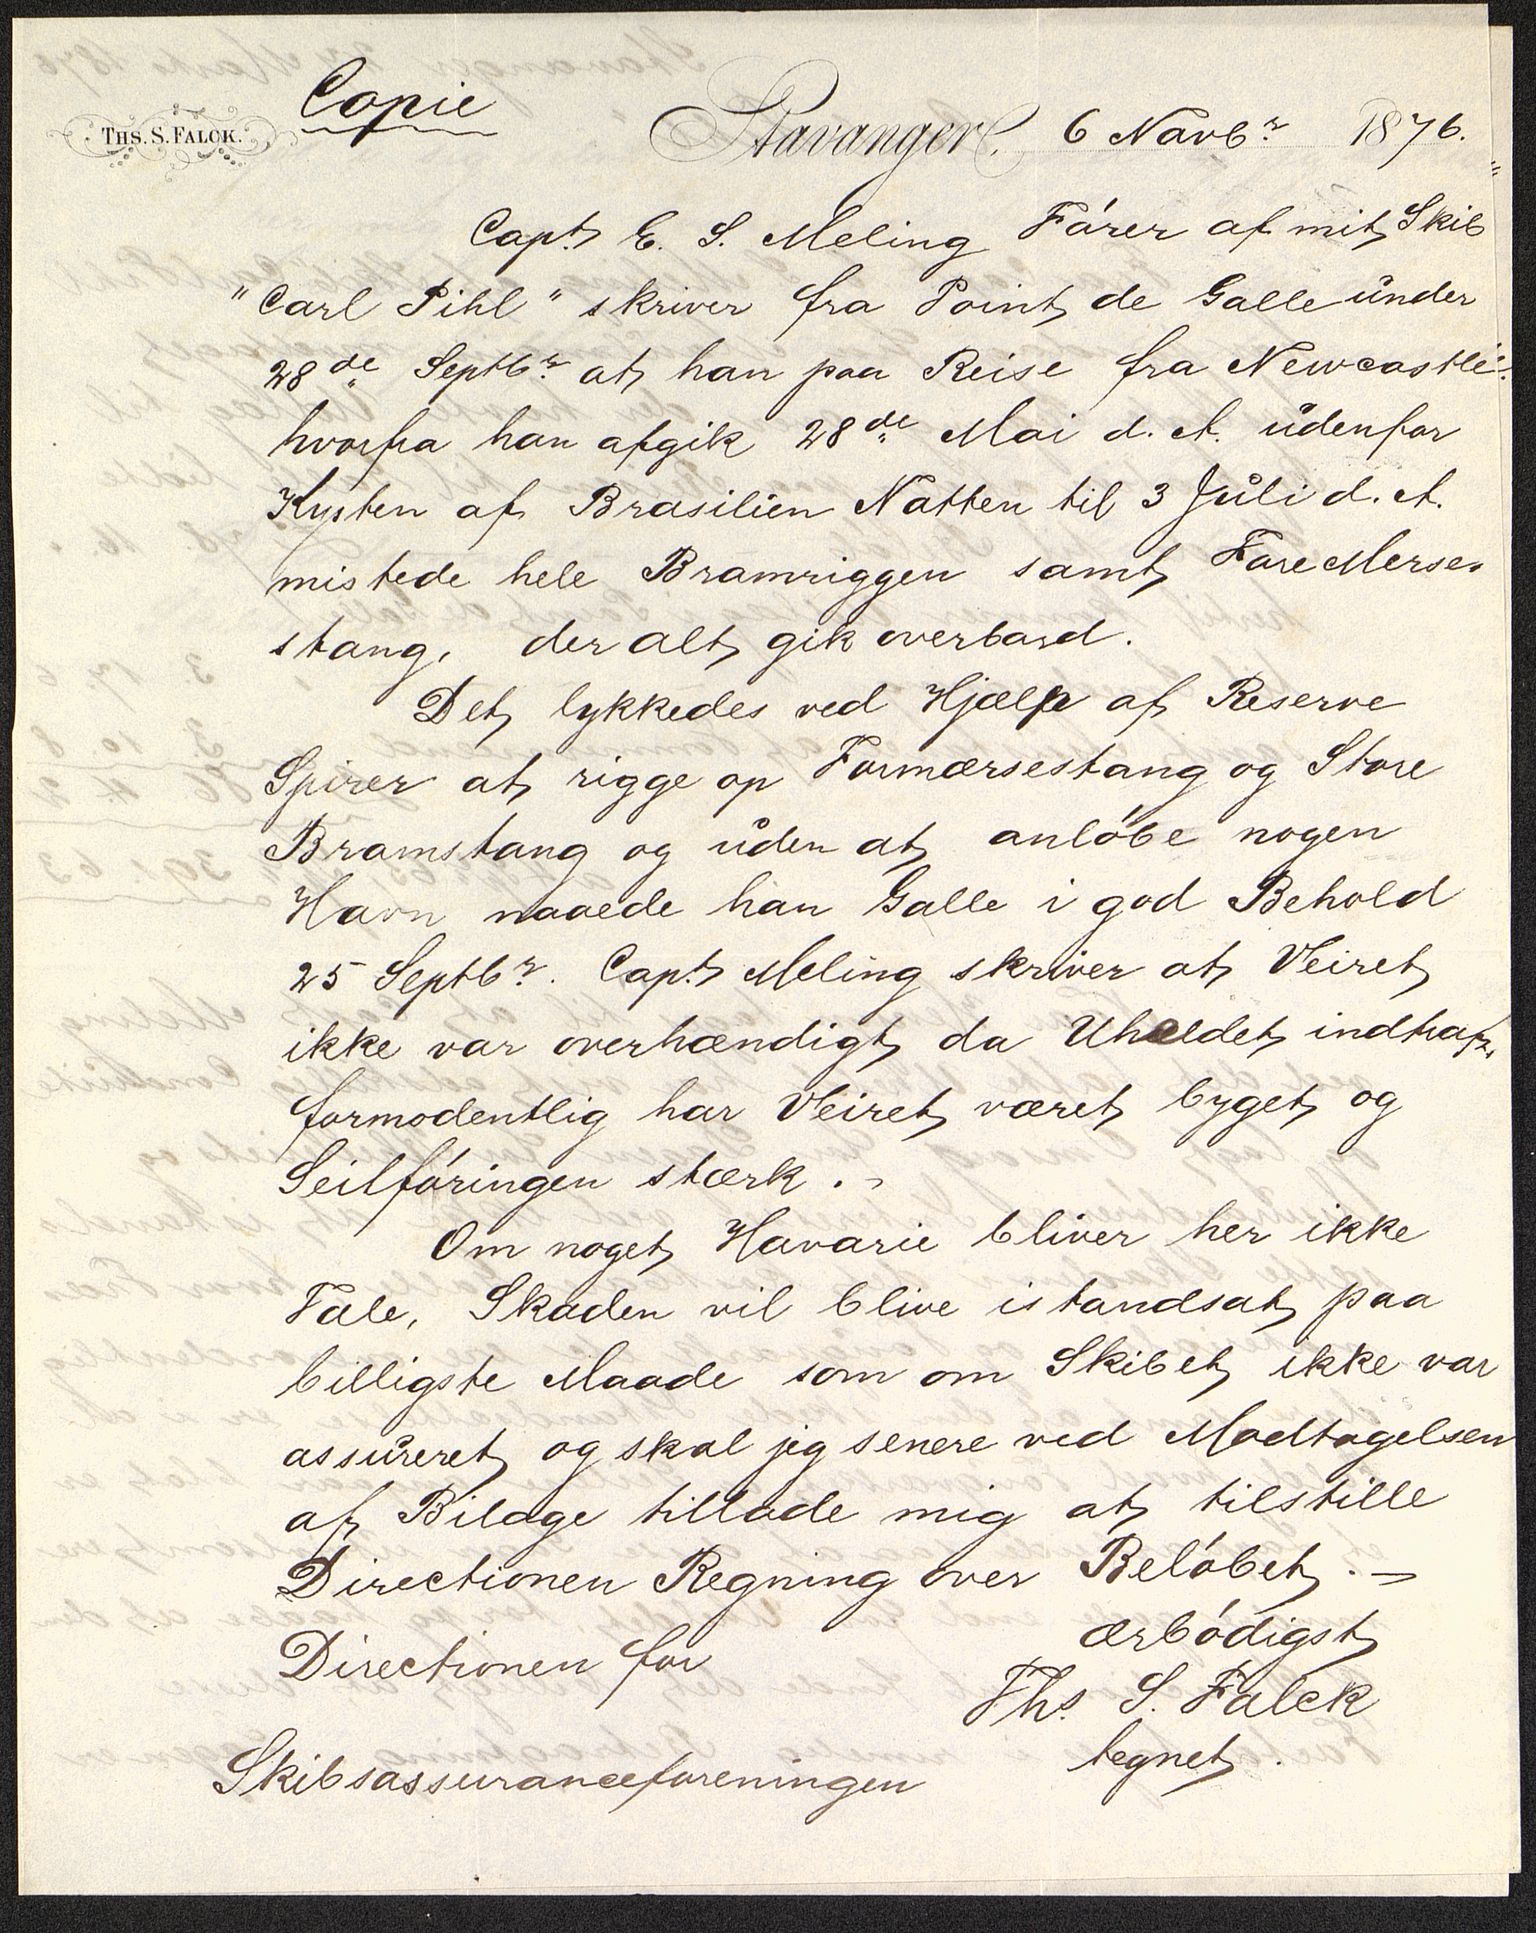 Copie
THS. S. FALCK.
Stavanger, 6 Novbr 1876.
Capt E. S. Meling Fører af mit Skib
"Carl Pihl" skriver fra Point de Galle under
28de Septbr at han paa Reise fra Newcastle
hvorfra han afgik 28de Mai d. A. udenfor
Kysten af Brasilien Natten til 3 Juli d. A.
mistede hele Bramriggen samt Fore Merse-
stang, der alt gik overbord.
Det lykkedes ved Hjælp af Reserve
Spirer at rigge op Formærsestang og Store
Bramstang og uden at anløbe nogen
Havn naaede han Galle i god Behold
25 Septbr. Capt Meling skriver at Veiret
ikke var overhændigt da Uheldet indtraf,
formodentlig har Veiret været byget og
Seilføringen stærk. -
Om noget Havarie bliver her ikke
Tale, Skaden vil blive istandsat paa
billigste Maade som om Skibet ikke var
assureret og skal jeg senere ved Modtagelsen
af Bilage tillade mig at tilstille
Directionen Regning over Beløbet. -
ærbødigst
Directionen for
Ths. S. Falck
tegnet.
Skibsassuranceforeningen